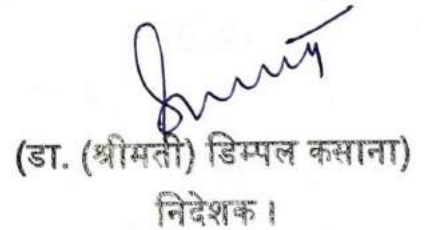 (डा. (श्रीमती) डिम्पल कसाना)
निदेशक।